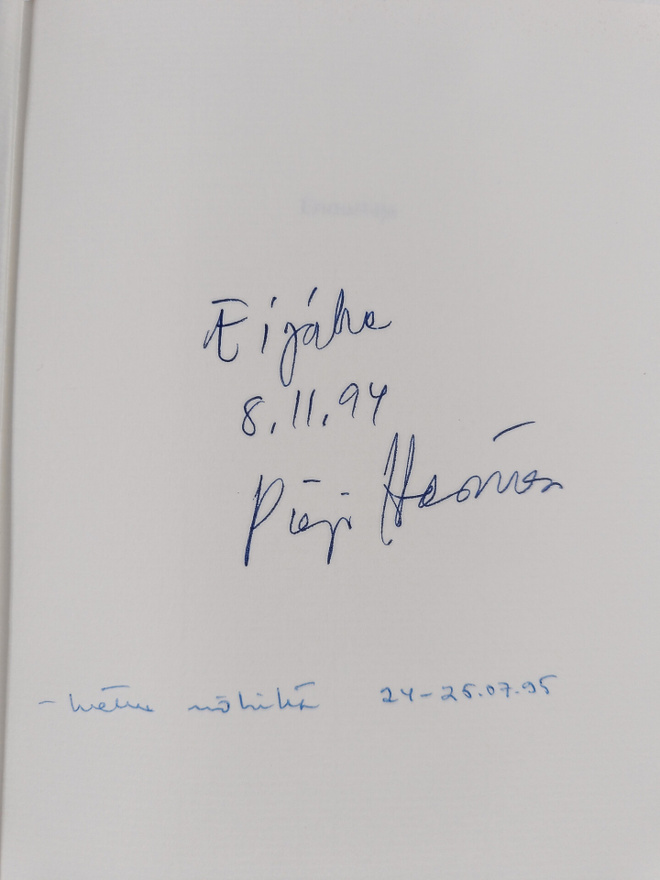 Eijalle
8.11.94
Pirjo Hassinen
- luettu mökillä 24-25.07.95